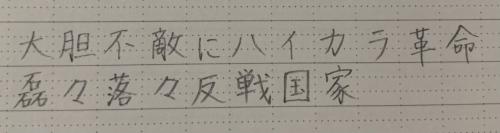 大胆不敵にハイカラ革命
磊々落々反戦国家